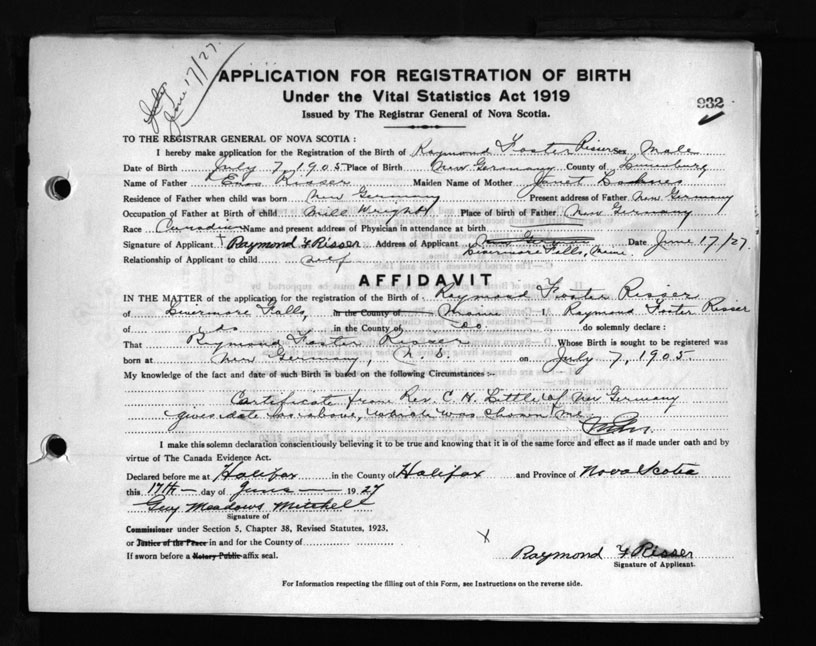 July
June 17/27.
APPLICATION FOR REGISTRATION OF BIRTH
Under the Vital Statistics Act 1919
932
Issued by The Registrar General of Nova Scotia.
TO THE REGISTRAR GENERAL OF NOVA SCOTIA :
I hereby make application for the Registration of the Birth of Raymond Foster Risser Sex Male
Date of Birth July 7, 1905 Place of Birth New Germany County of Lunenburg
Name of Father Enos Risser Maiden Name of Mother Janet
Residence of Father when child was born New Germany Present address of Father New Germany
Occupation of Father at Birth of child Mill Wright Place of birth of Father New Germany
Race Canadian Name and present address of Physician in attendance at birth
Signature of Applicant Raymond F Risser Address of Applicant New Germany Date June 17/27.
Livermore Falls, Maine.
Relationship of Applicant to child self
AFFIDAVIT
IN THE MATTER of the application for the registration of the Birth of Raymond Foster Risser
of Livermore Falls, in the County of Maine I, Raymond Foster Risser
of do in the County of do do solemnly declare :
That Raymond Foster Risser Whose Birth is sought to be registered was
born at New Germany, N. S. on July 7, 1905.
My knowledge of the fact and date of such Birth is based on the following Circumstances :-
Certificate from Rev. C. H. Little of New Germany
gives date as above, which was shown me.
I make this solemn declaration conscientiously believing it to be true and knowing that it is of the same force and effect as if made under oath and by
virtue of The Canada Evidence Act.
Declared before me at Halifax in the County of Halifax and Province of Nova Scotia
this 17th day of June 1927
Guy Meadows Mitchell
Signature of
Commissioner under Section 5, Chapter 38, Revised Statutes, 1923,
or Justice of the Peace in and for the County of
If sworn before a Notary Public affix seal.
X Raymond F Risser
Signature of Applicant.
For Information respecting the filling out of this Form, see Instructions on the reverse side.